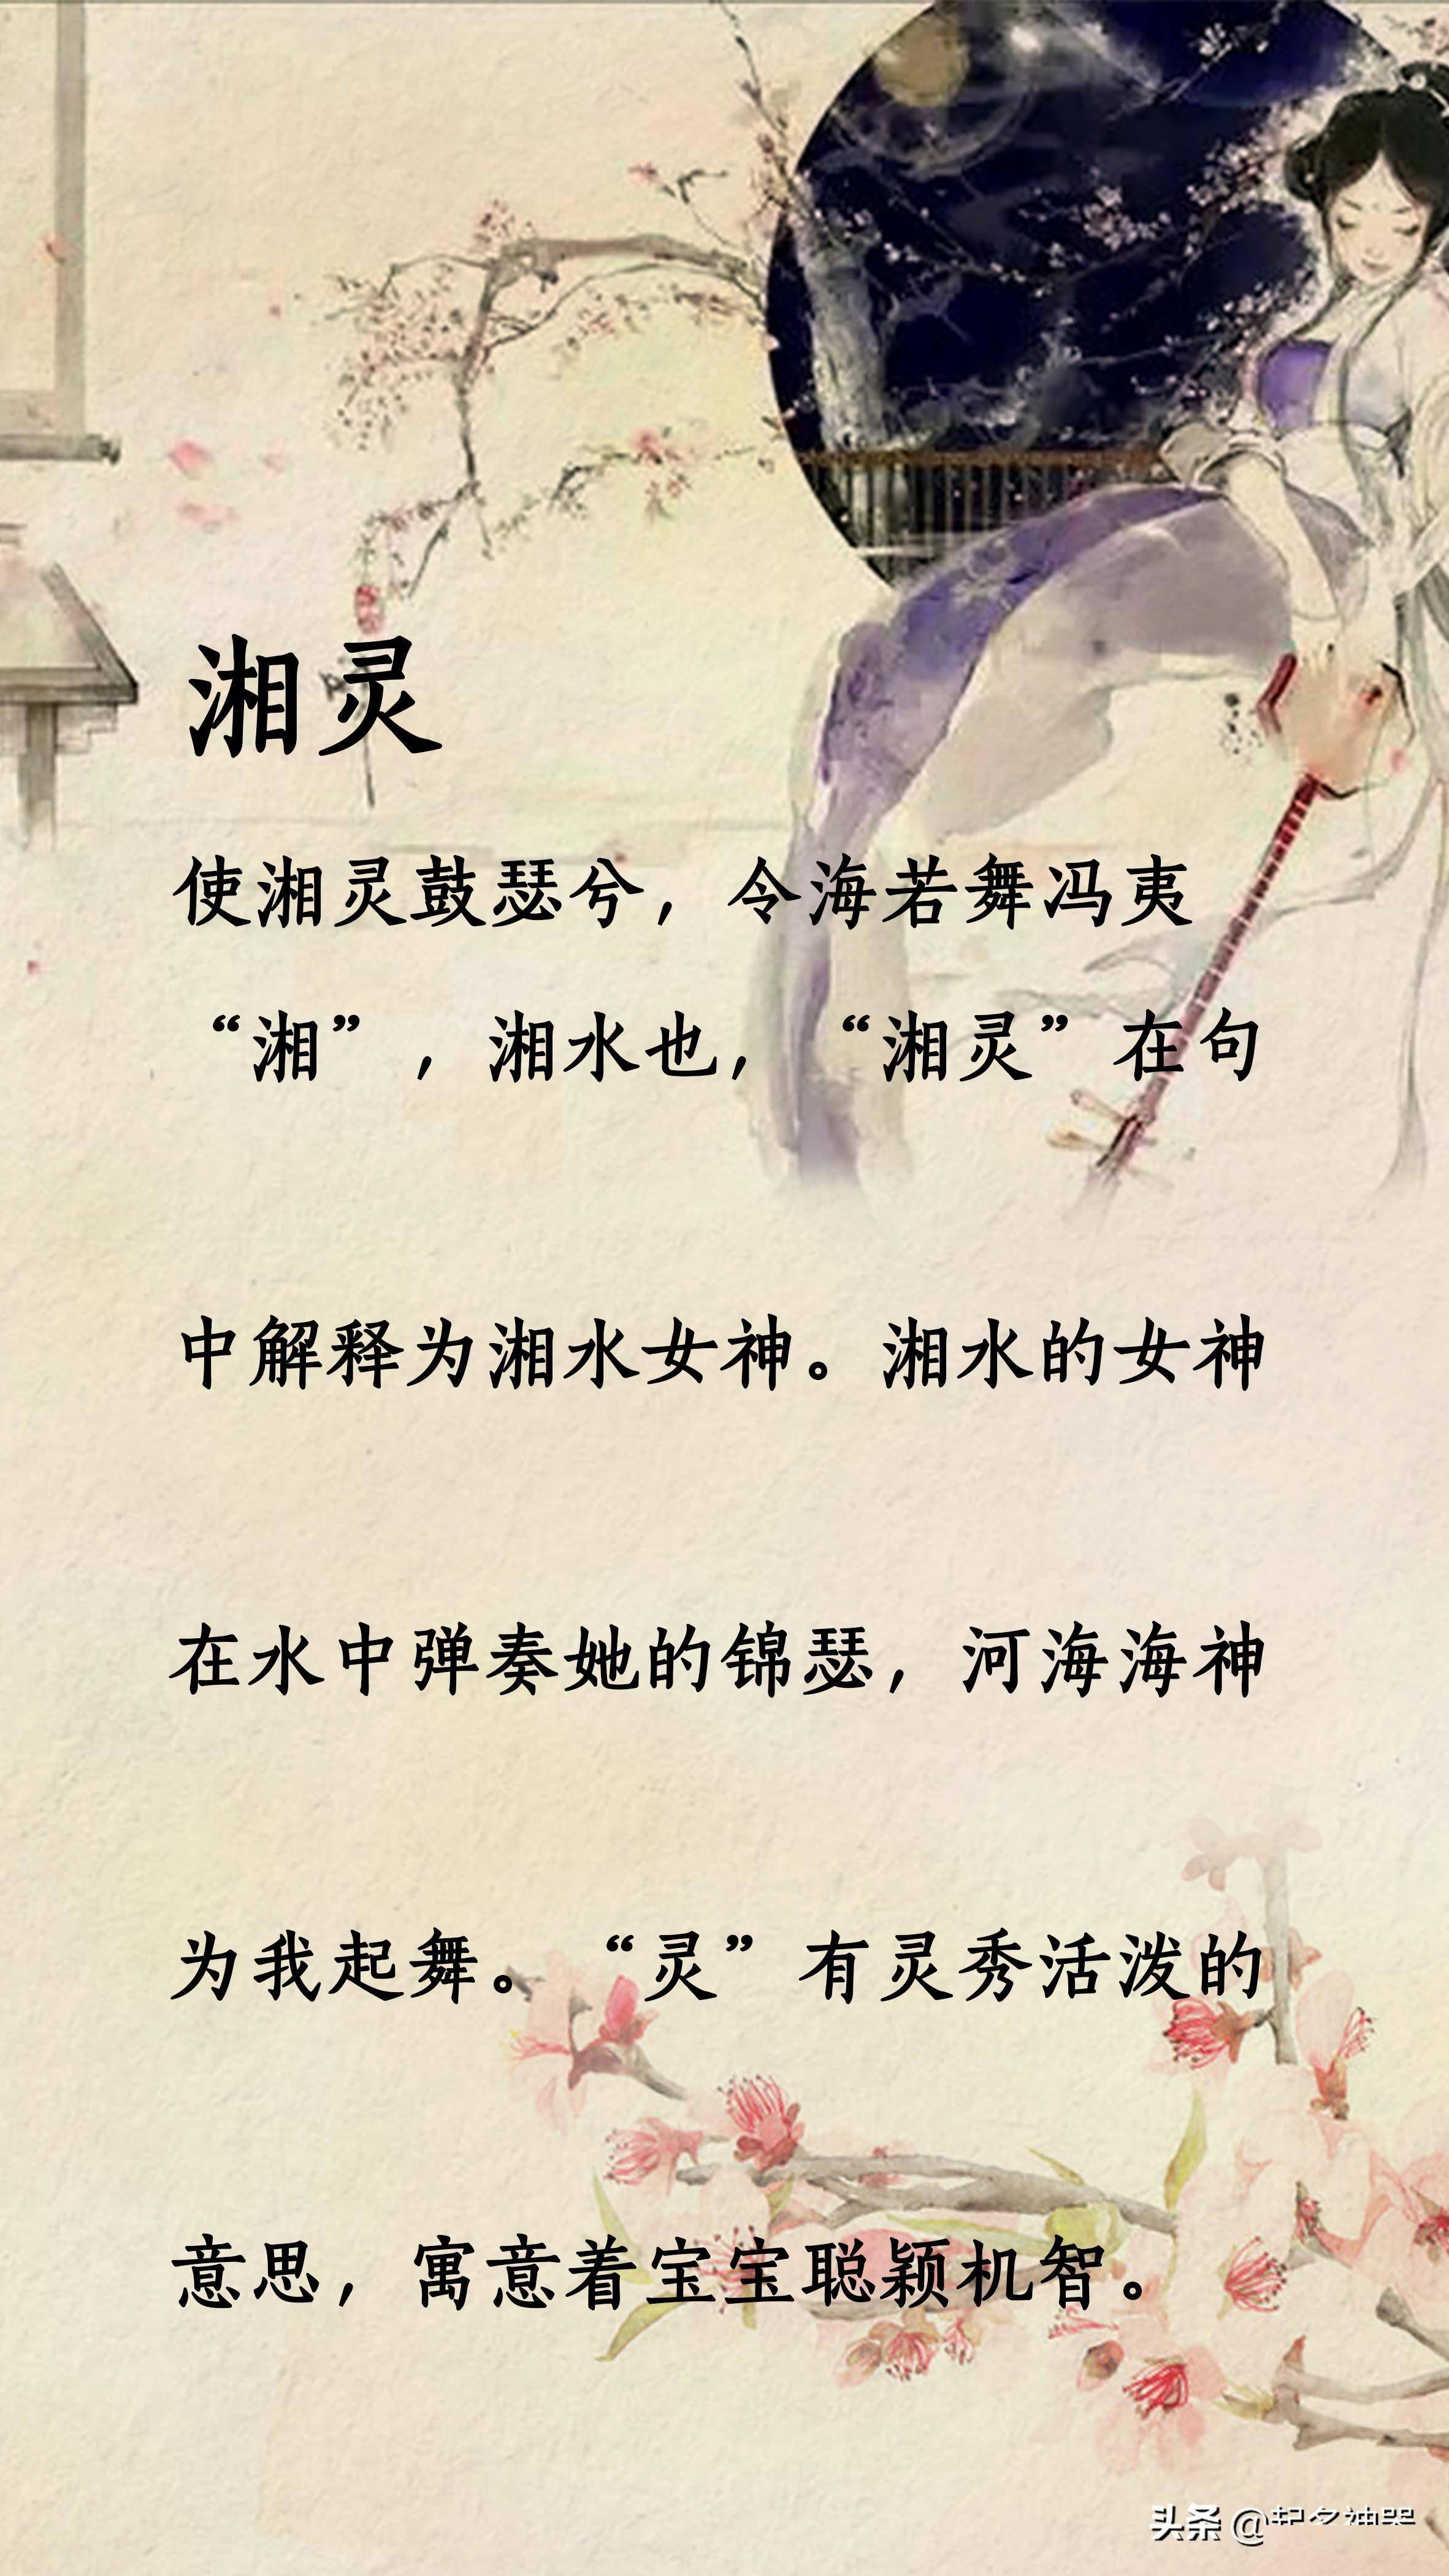 湘灵
使湘灵鼓瑟兮，令海若舞冯夷
“湘”，湘水也，“湘灵”在句
中解释为湘水女神。湘水的女神
在水中弹奏她的锦瑟，河海海神
为我起舞。“灵”有灵秀活泼的
意思，寓意着宝宝聪颖机智。
头条 @起名神器